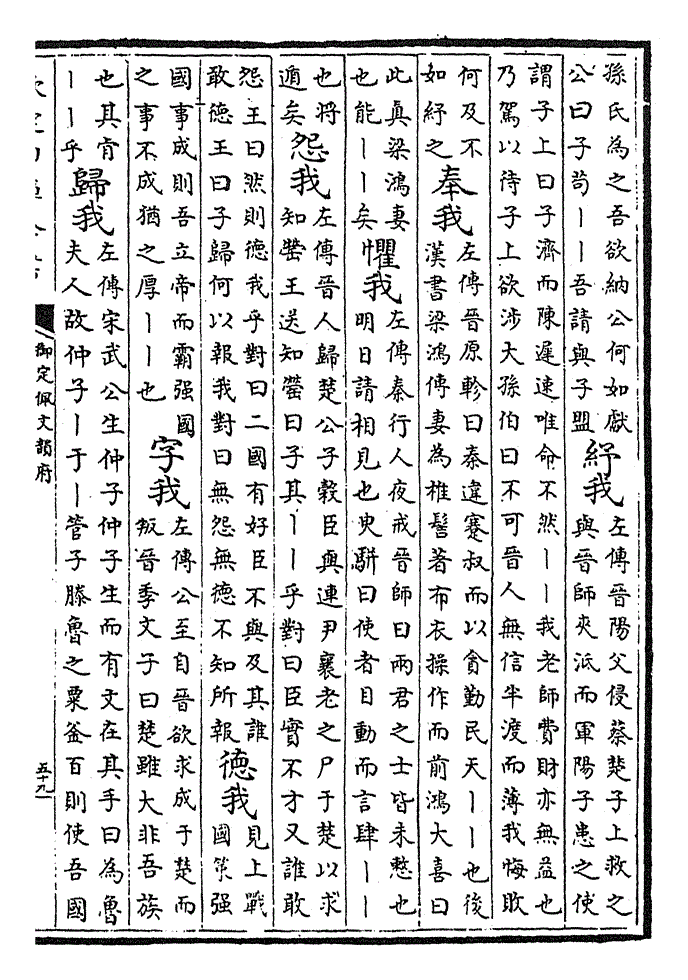 孫氏為之吾欲納公何如獻
公曰子苟——吾請與子盟
紓我
左傳晉陽父侵蔡楚子上救之
與晉師夾泜而軍陽子患之使
謂子上曰子濟而陳遲速唯命不然——我老師費財亦無益也
乃駕以待子上欲涉大孫伯曰不可晉人無信半渡而薄我悔敗
何及不
如紓之
奉我
左傳晉原軫曰秦違蹇叔而以貪勤民天——也後
漢書梁鴻傳妻為椎髻著布衣操作而前鴻大喜曰
此真梁鴻妻
也能——矣
懼我
左傳秦行人夜戒晉師曰兩君之士皆未憖也
明日請相見也臾駢曰使者目動而言肆——
也將
遁矣
怨我
左傳晉人歸楚公子榖臣與連尹襄老之尸于楚以求
知罃王送知罃曰子其——乎對曰臣實不才又誰敢
怨王曰然則德我乎對曰二國有好臣不與及其誰
敢德王曰子歸何以報我對曰無怨無德不知所報
德我
見上戰
國策强
國事成則吾立帝而霸强國
之事不成猶之厚——也
字我
左傳公至自晉欲求成于楚而
叛晉季文子曰楚雖大非吾族
也其肯
——乎
歸我
左傳宋武公生仲子仲子生而有文在其手曰為魯
夫人故仲子—于—管子滕魯之粟釜百則使吾國
御定佩文韻府
五十九